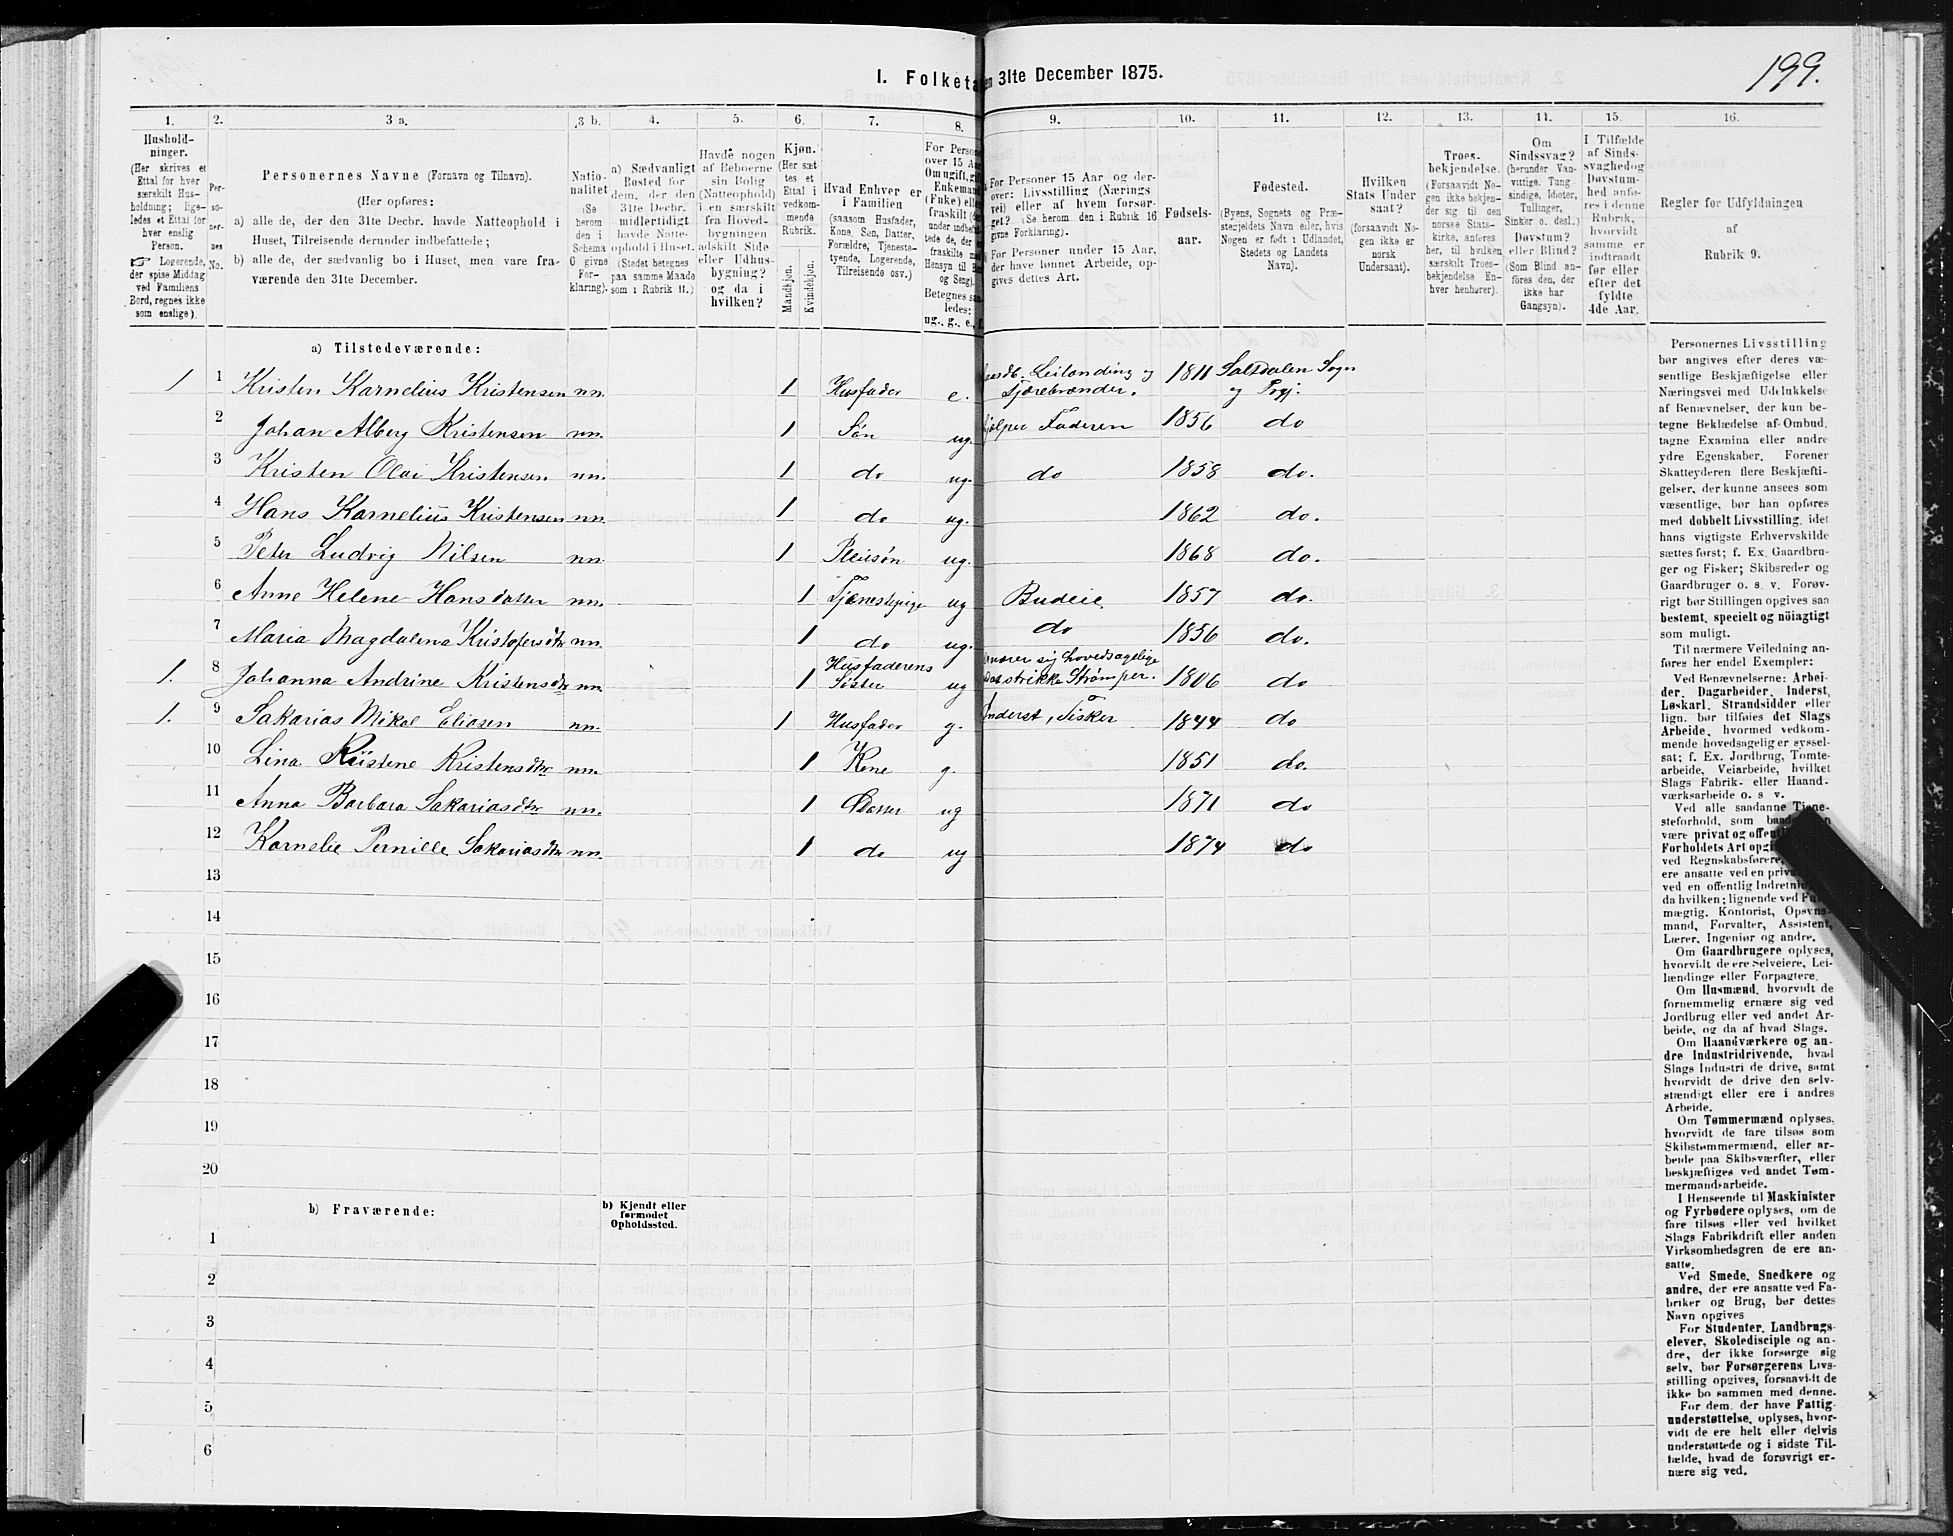 199.
I. Folketa en 31te December 1875.
1. 2. 3 a. 3 b. 4. 5. 6. 7. 8. 9. 10. 11. 12. 13. 14. 15. 16.
Hushold-
ninger.
(Her skrives et
Ettal for hver
særskilt Hus-
holdning; lige-
ledes et Ettal for
hver enslig
Person.
☞ Logerende,
der spise Middag
ved Familiens
Bord, regnes ikke
som enslige).
Per-
so-
ner-
nes
No.
Personernes Navne (Fornavn og Tilnavn).
(Her opføres:
a) alle de, der den 31te Decbr. havde Natteophold i
Huset, Tilreisende derunder indbefattede;
b) alle de, der sædvanlig bo i Huset, men vare fra-
værende den 31te December.
Natio-
nalitet
(Se
herom
den i
Schema
O givne
For-
klaring).
a) Sædvanligt
Bosted for
dem, der den
31te Decbr.
midlertidigt
havde Natte-
ophold i Huset.
(Stedet betegnes
paa samme Maade
som i Rubrik 11.)
Havde nogen
af Beboerne
sin Bolig
(Natteophold)
i en særskilt
fra Hoved-
bygningen
adskilt Side
eller Udhus-
bygning?
og da i
hvilken?
Kjøn.
(Her sæt-
tes et
Ettal i
vedkom-
mende
Rubrik.
Mandkjøn.
Kvindekjøn.
Hvad Enhver er
i Familien
(saasom Husfader,
Kone, Søn, Datter,
Forældre, Tjeneste-
tyende, Logerende,
Tilreisende osv.)
For Persone
over 15 Aa
Om ugift, gif
Enkemand
(Enke) elle
fraskilt (de
under indbefat
tede de, der e
fraskilte m
Hensyn til Bo
og Seng).
Betegnes saa
ledes:
ug., g., e., f.
For Personer 15 Aar og der-
over: Livsstilling (Nærings
vei) eller af hvem forsør-
get? (Se herom den i Rubrik 16
givne Forklaring).
For Personer under 15 Aar,
der have lønnet Arbeide, op-
gives dettes Art.
Fødsels-
aar.
Fødested.
(Byens, Sognets og Præ-
stegjeldets Navn eller, hvis
Nogen er født i Udlandet,
Stedets og Landets
Navn).
Hvilken
Stats Under
saat?
(forsaavidt No-
gen ikke er
norsk
Undersaat).
Troes-
bekjendelse.
(Forsaavidt No-
gen ikke bekjen-
der sig til den
norske Stats-
kirke, anføres
her, til hvilken
særskilt Troes-
bekjendelse En-
hver henhører).
Om
Sindssvag?
(herunder Van-
vittige, Tung
sindige, Idioter,
Tullinger,
Sinker o. desl.)
Døvstum?
eller Blind?
(Som Blind an-
føres den, der
ikke har
Gangsyn).
I Tilfælde
af Sinds-
svaghed og
Døvstum-
hed anfø-
res i denne
Rubrik,
hvorvidt
samme er
indtraadt
før eller
efter det
fyldte
4de Aar.
Regler for Udfyldningen
af
Rubrik 9.
a) Tilstedeværende:
1 1 Kristen Karnelius Kristensen nn. 1 Husfader e. Leilænding og Tjærebrænder. 1811 Saltdalen Sogn og Prgj.
2 Johan Alberg Kristensen nn. 1 Søn ug. Hjælper Faderen 1856 do
3 Kristen Olai Kristensen nn. 1 do ug. do 1858 do.
4 Hans Karnelius Kristensen nn. 1 do ug. 1862 do.
5 Peter Ludvig Nilsen nn. 1 Pleiesøn ug. 1868 do.
6 Anne Helene Hansdatter nn. 1 Tjenestepige ug Budeie 1857 do.
7 Maria Magdalena Kristofersdtr nn. 1 do ug. do 1856 do.
1. 8 Johanna Andrine Kristensdtr nn. 1 Husfaderens Søster ug ernærer sig hovedsagelige strikke Strømper. 1806 do
1. 9 Sakarias Mikal Eliasen nn. 1 Husfader g. Inderst, Fisker 1844 do
10 Lina Kristene Kristensdtr nn. 1 Kone g. 1851 do.
11 Anna Barbara Sakariasdtr nn. 1 Datter ug 1871 do
12 Karnelie Pernille Sakariasdtr nn. 1 do ug 1874 do
13
14
15
16
17
18
19
20
b) Fraværende:
b) Kjendt eller
formodet
Opholdssted.
1
2
3
4
5
6
Personernes Livsstilling
bør angives efter deres væ-
sentlige Beskjæftigelse eller
Næringsvei med Udelukkelse
af Benævnelser, der kun be-
tegne Beklædelse af Ombud,
tagne Examina eller andre
ydre Egenskaber. Forener
Skatteyderen flere Beskjæfti-
gelser, der kunne ansees som
væsentlige, bør han opføres
med dobbelt Livsstilling, idet
hans vigtigste Erhvervskilde
sættes først; f. Ex. Gaardbru-
ger og Fisker; Skibsreder og
Gaardbruger o. s. v. Forøv-
rigt bør Stillingen opgives saa
bestemt, specielt og nöiagtigt
som muligt.
Til nærmere Veiledning an-
føres her endel Exempler:
Ved Benævnelserne: Arbei-
der, Dagarbeider, Inderst,
Løskarl, Strandsidder eller
lign. bør tilføies det Slags
Arbeide, hvormed vedkom-
mende hovedsagelig er syssel-
sat; f. Ex. Jordbrug, Tomte-
arbeide, Veiarbeide, hvilket
Slags Fabrik- eller Haand-
værksarbeide o. s v.
Ved alle saadanne Tjene-
steforhold, som baade
være privat og offent
Forholdets Art opgi
ved Regnskabsførere,
ere ansatte ved en priva
ved en offentlig Indretnin
da hvilken; lignende ved Ful
mægtig, Kontorist, Opsyns-
mand, Forvalter, Assistent,
Lærer, Ingeniør og andre.
Om Gaardbrugere oplyses,
hvorvidt de ere Selveiere, Lei-
lændinge eller Forpagtere.
Om Husmænd, hvorvidt de
fornemmelig ernære sig ved
Jordbrug eller ved andet Ar-
beide, og da af hvad Slags.
Om Haandværkere og an-
dre Industridrivende, hvad
Slags Industri de drive, samt
hvorvidt de drive den selv-
stændigt eller ere i andres
Arbeide.
Om Tømmermænd oplyses,
hvorvidt de fare tilsøs som
Skibstømmermænd, eller ar-
beide paa Skibsværfter, eller
beskjæftiges ved andet Tøm-
mermandsarbeide.
I Henseende til Maskinister
og Fyrbødere oplyses, om de
fare tilsøs eller ved hvilket
Slags Fabrikdrift eller anden
Virksomhedsgren de ere an-
satte.
Ved Smede, Snedkere og
andre, der ere ansatte ved Fa-
briker og Brug, bør dettes
Navn opgives
For Studenter, Landbrugs-
elever, Skoledisciple og an-
dre, der ikke forsørge sig
selv, bør Forsørgerens Livs-
stilling opgives, forsaavidt de
ikke bo sammen med denne.
For dem, der have Fattig-
understøttelse, oplyses, hvor-
vidt de ere helt eller delvis
understøttede og i sidste Til-
fælde, hvad de forøvrigt er-
nære sig ved.